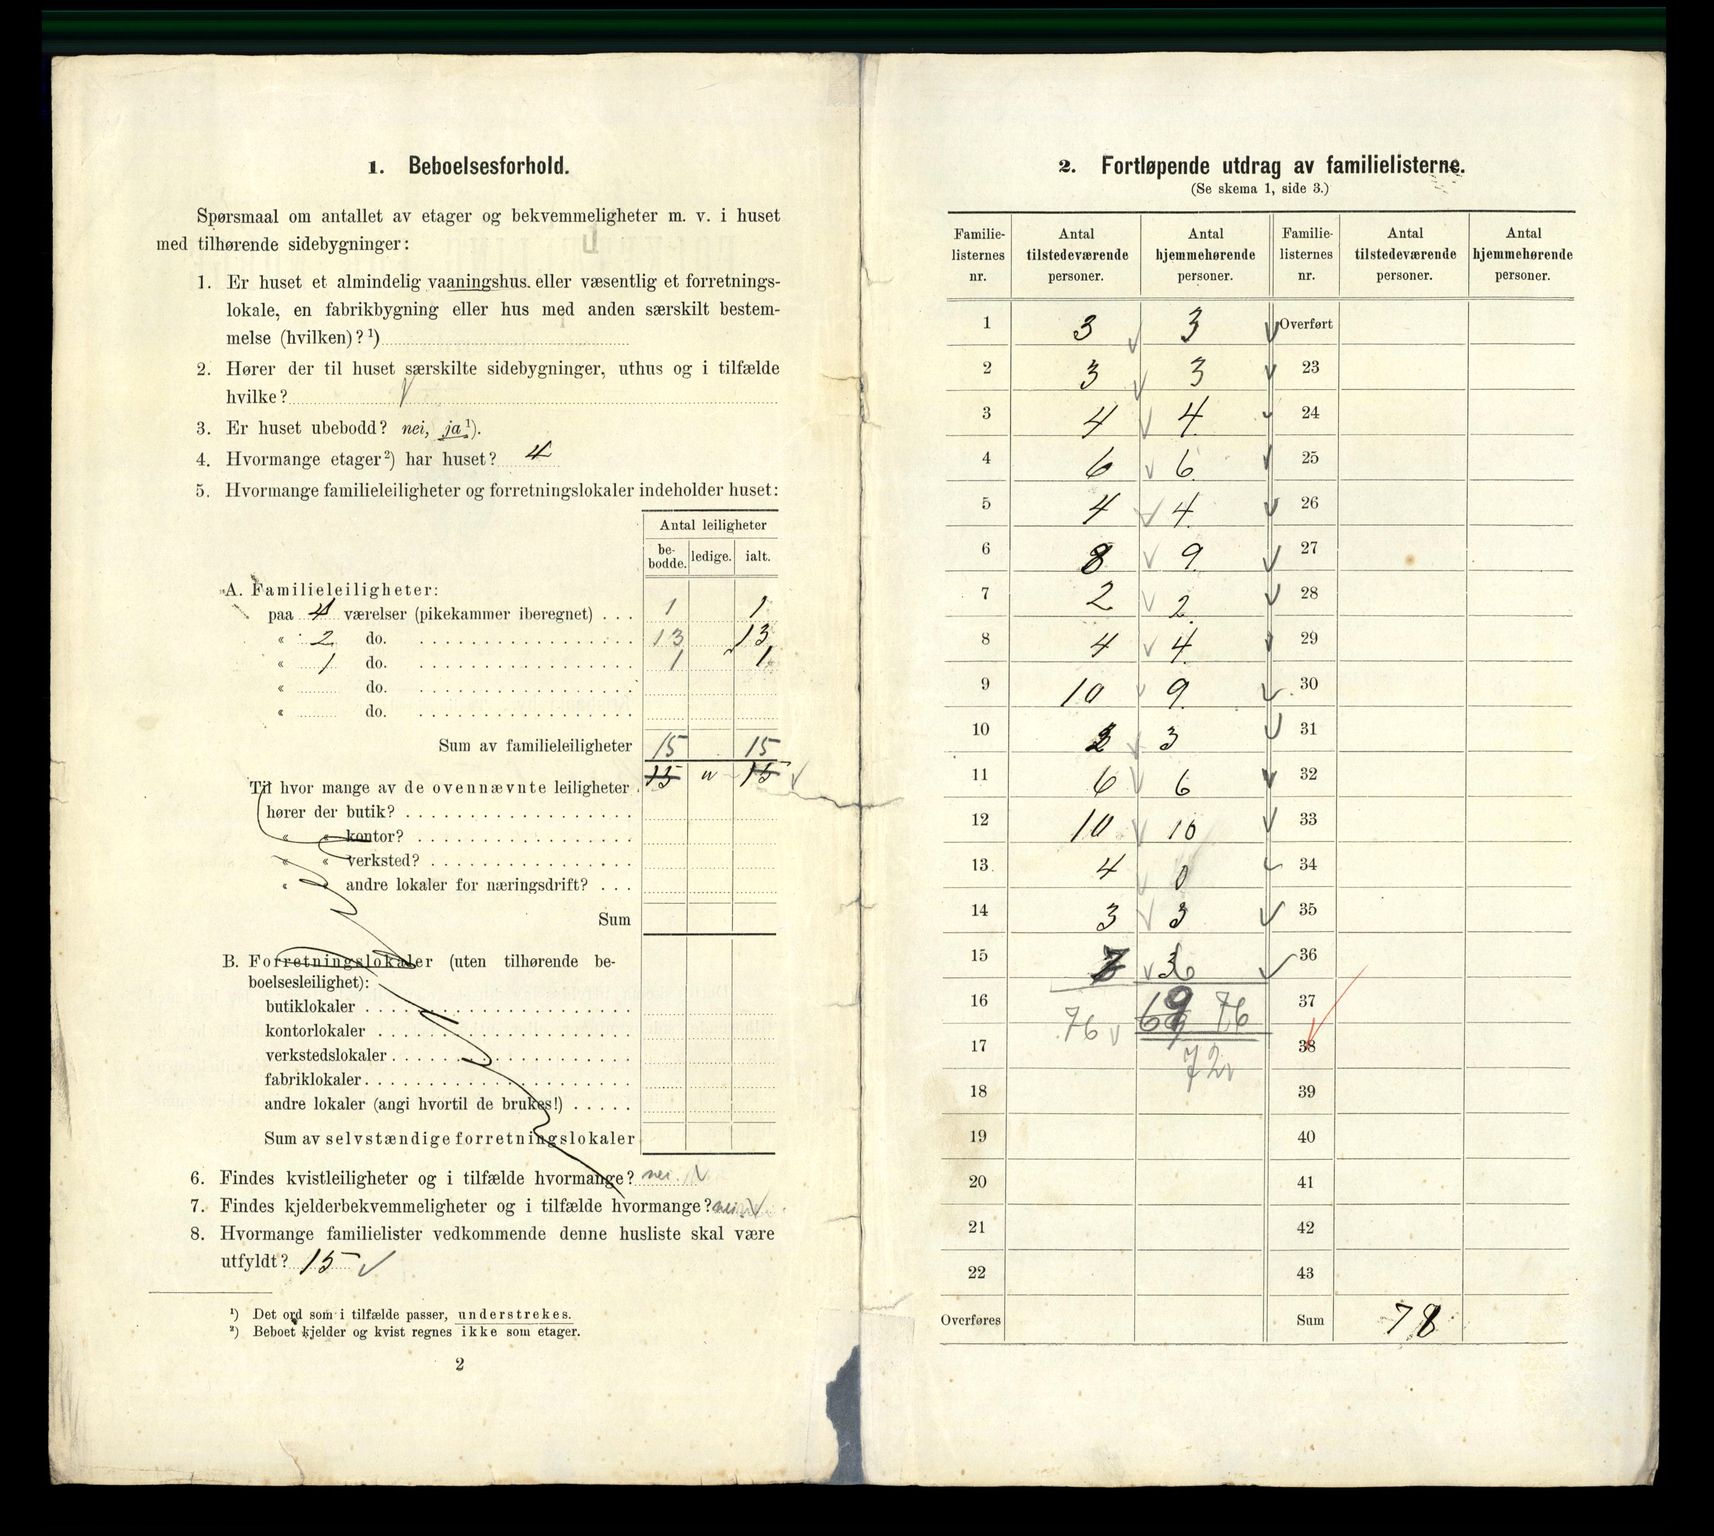 1. Beboelsesforhold.
Spørsmaal om antallet av etager og bekvemmeligheter m. v. i huset
med tilhørende sidebygninger:
1. Er huset et almindelig vaaningshus eller væsentlig et forretnings-
lokale, en fabrikbygning eller hus med anden særskilt bestem-
melse (hvilken)? ¹)
2. Hører der til huset særskilte sidebygninger, uthus og i tilfælde
hvilke?
3. Er huset ubebodd? nei, ja ¹).
4. Hvormange etager ²) har huset? 4
5. Hvormange familieleiligheter og forretningslokaler indeholder huset:
Antal leiligheter
be-bodde. ledige. ialt.
A. Familieleiligheter:
paa 4 værelser (pikekammer iberegnet) . . . 1 1
« 2 do. 13 13
« 1 do. 1 1
« do.
« do.
Sum av familieleiligheter 15 15
15 " 15
Til hvor mange av de ovennævnte leiligheter
hører der butik?
« « kontor?
« « verksted?
« andre lokaler for næringsdrift? . . .
Sum
B. Forretningslokaler (uten tilhørende be-
boelsesleilighet):
butiklokaler
kontorlokaler
verkstedslokaler
fabriklokaler
andre lokaler (angi hvortil de brukes!)
Sum av selvstændige forretningslokaler
6. Findes kvistleiligheter og i tilfælde hvormange? nei
7. Findes kjelderbekvemmeligheter og i tilfælde hvormange? nei
8. Hvormange familielister vedkommende denne husliste skal være
utfyldt? 15
¹) Det ord som i tilfælde passer, understrekes.
²) Beboet kjelder og kvist regnes ikke som etager.
2
2. Fortløpende utdrag av familielisterne.
(Se skema 1, side 3.)
Familie-listernes nr. Antal tilstedeværende personer. Antal hjemmehørende personer. Familie-listernes nr. Antal tilstedeværende personer. Antal hjemmehørende personer.
1 3 3 Overført
2 3 3 23
3 4 4 24
4 6 6 25
5 4 4 26
6 8 9 27
7 2 2 28
8 4 4 29
9 10 9 30
10 3 31
11 6 6 32
12 10 10 33
13 4 0 34
14 3 3 35
15 36
16 76 76 37
17 72 38
18 39
19 40
20 41
21 42
22 43
Overføres Sum 78